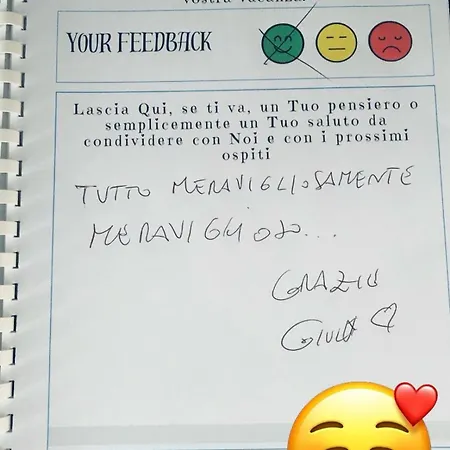 vostra vacanza.
YOUR FEEDBACK
Lascia Qui, se ti va, un Tuo pensiero o
semplicemente un Tuo saluto da
condividere con Noi e con i prossimi
ospiti
TUTTO MERAVIGLIOSAMENTE
MERAVIGLIOSO...
GRAZIE